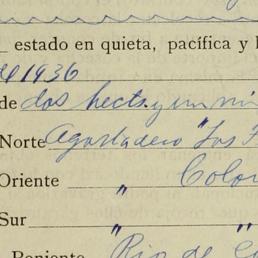 estado en quieta, pacífica y
de 1936
de dos hects. y un mi
Norte Agostadero "Las
Oriente " Color
Sur " "
Poniente Rio de